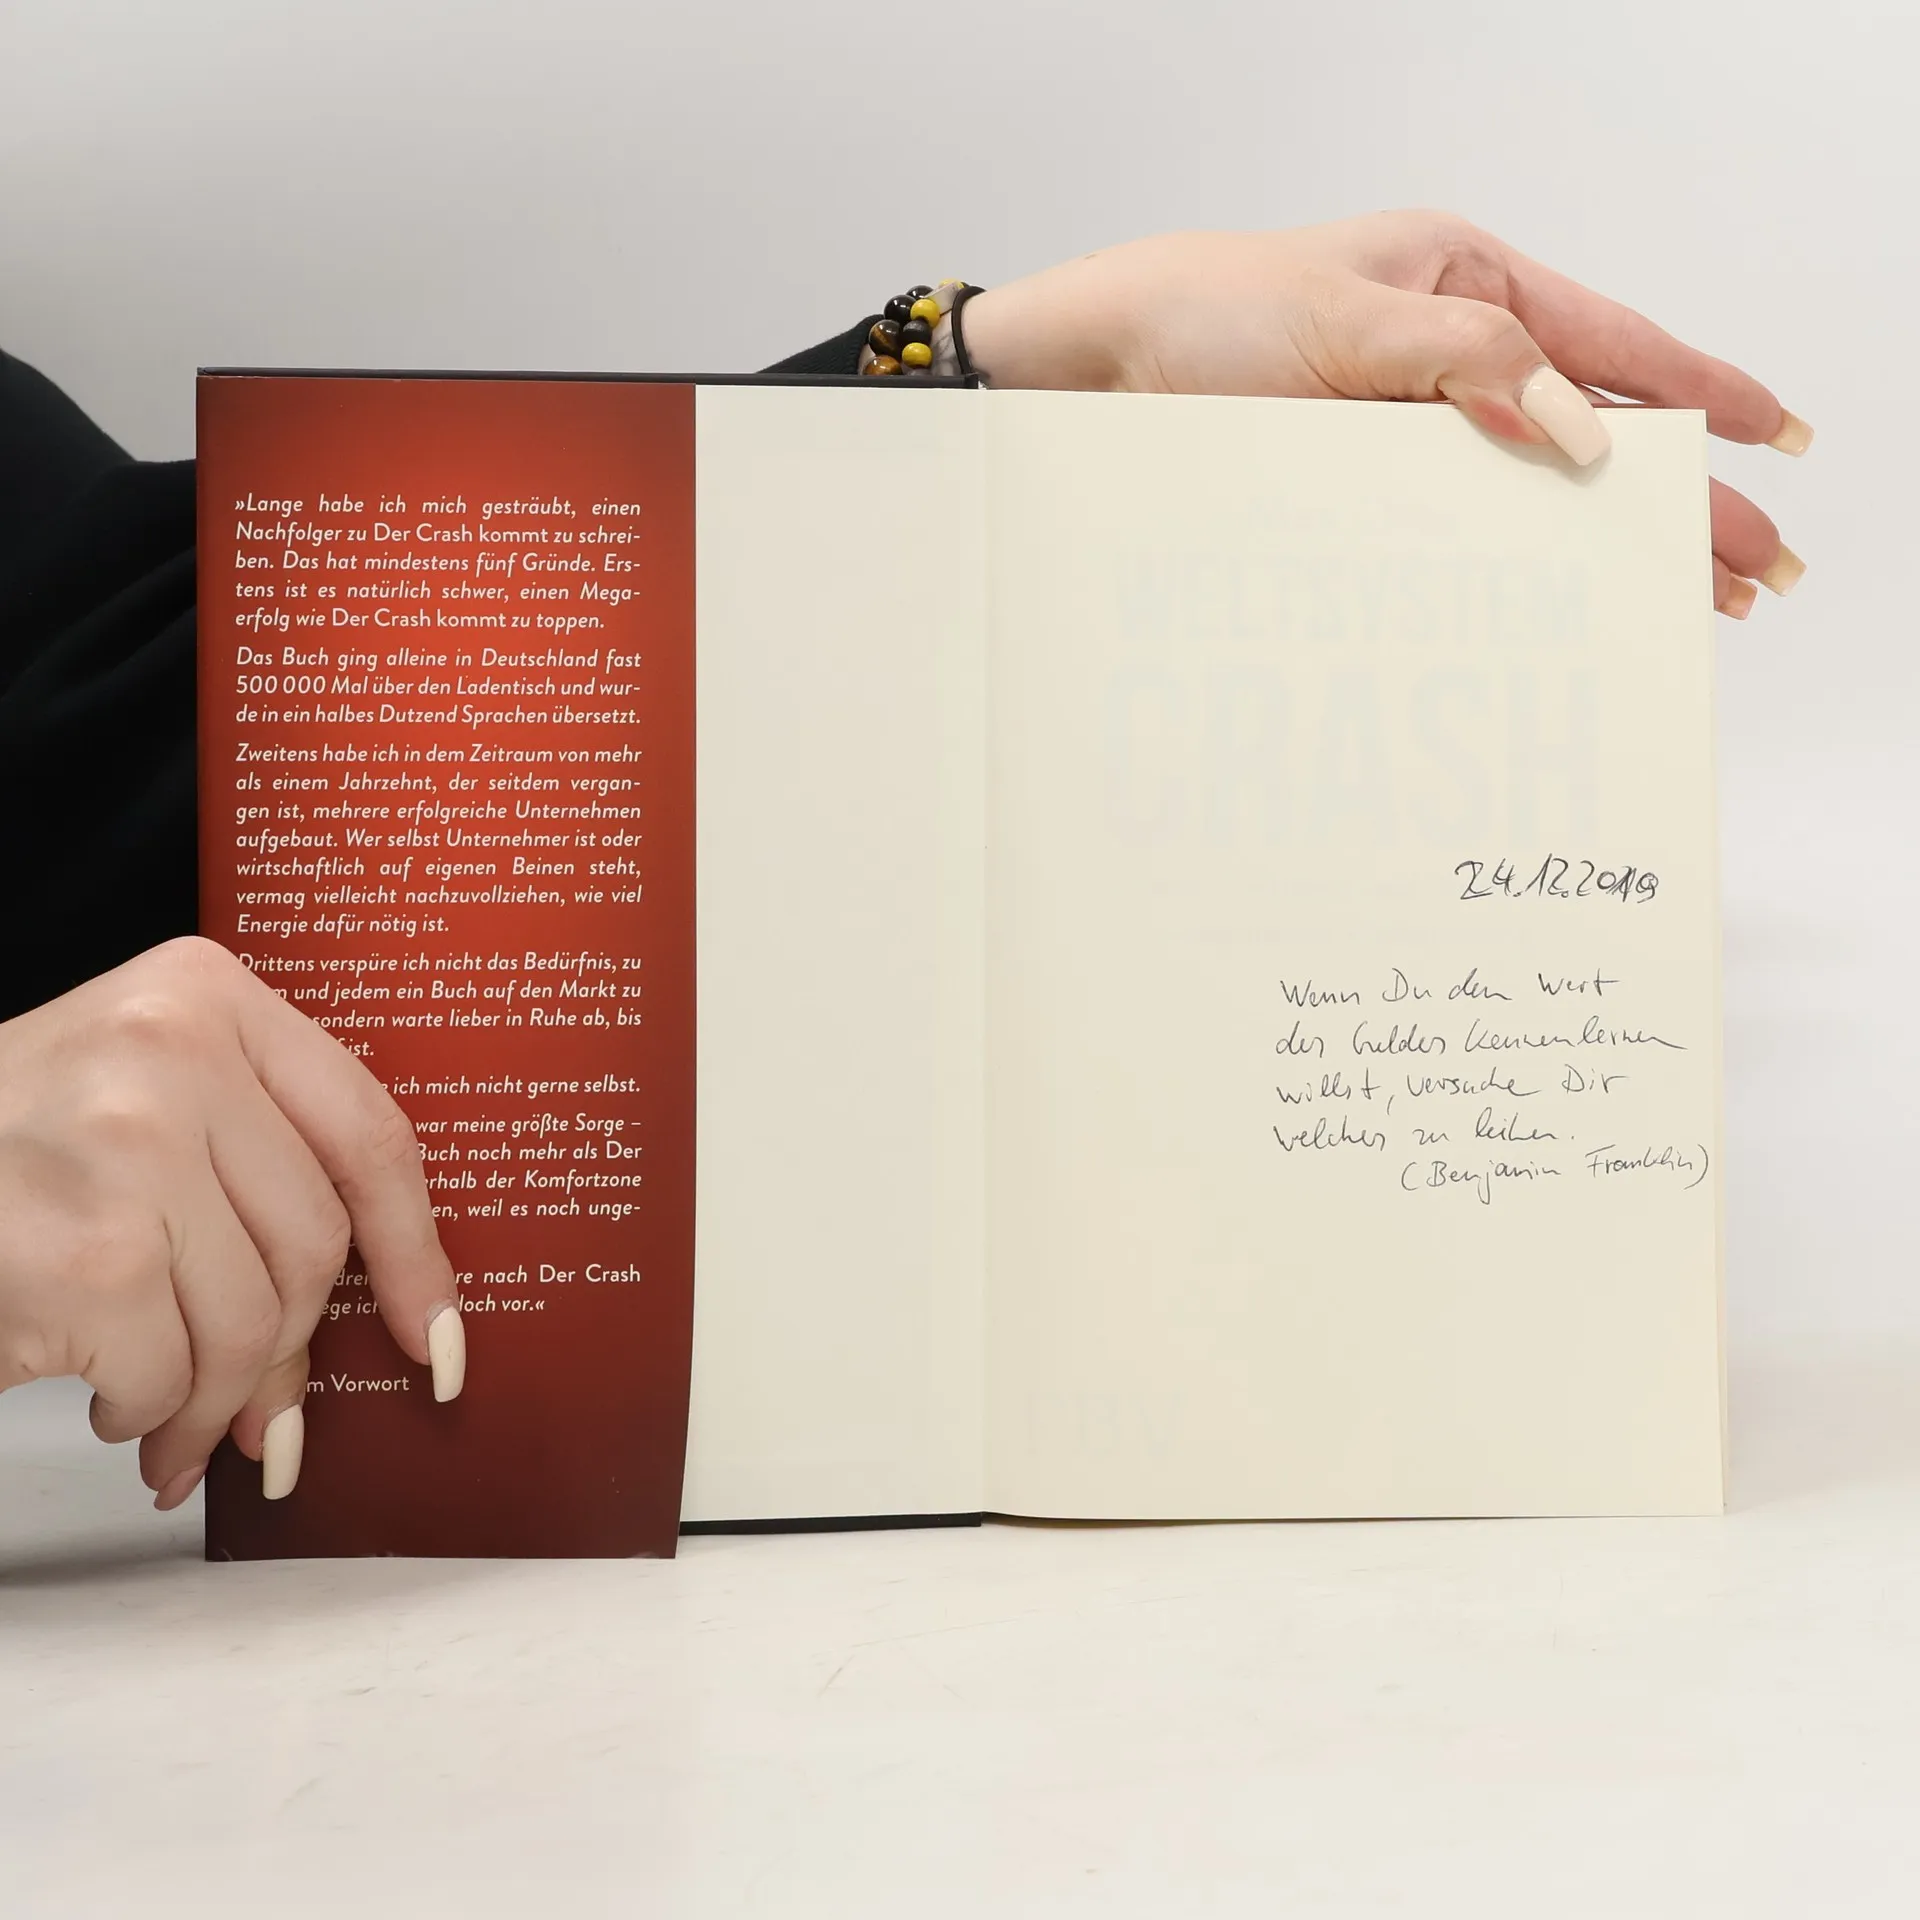 »Lange habe ich mich gesträubt, einen
Nachfolger zu Der Crash kommt zu schrei-
ben. Das hat mindestens fünf Gründe. Ers-
tens ist es natürlich schwer, einen Mega-
erfolg wie Der Crash kommt zu toppen.
Das Buch ging alleine in Deutschland fast
500 000 Mal über den Ladentisch und wur-
de in ein halbes Dutzend Sprachen übersetzt.
Zweitens habe ich in dem Zeitraum von mehr
als einem Jahrzehnt, der seitdem vergan-
gen ist, mehrere erfolgreiche Unternehmen
aufgebaut. Wer selbst Unternehmer ist oder
wirtschaftlich auf eigenen Beinen steht,
vermag vielleicht nachzuvollziehen, wie viel
Energie dafür nötig ist.
Drittens verspüre ich nicht das Bedürfnis, zu
und jedem ein Buch auf den Markt zu
sondern warte lieber in Ruhe ab, bis
ist.
ich mich nicht gerne selbst.
war meine größte Sorge –
Buch noch mehr als Der
der Komfortzone
weil es noch unge-
nach Der Crash
ich vor.«
Vorwort
WELTSYSTEM
CRASH
24.12.2019
Wenn Du den Wert
des Geldes kennenlernen
willst, versuche Dir
welches zu leihen.
(Benjamin Franklin)